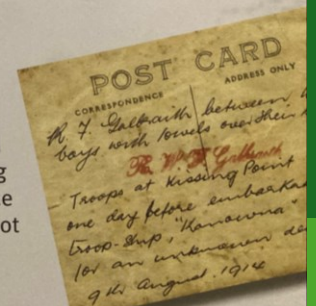 POST CARD
CORRESPONDENCE
ADDRESS ONLY
R. F. Galbraith between
boys with towels over their
R. Galbraith
- Troops at Kissing Point
one day before embarka
troop-ship, "Kanowna"
for an unknown de
9th August. 1914
g
e
ot